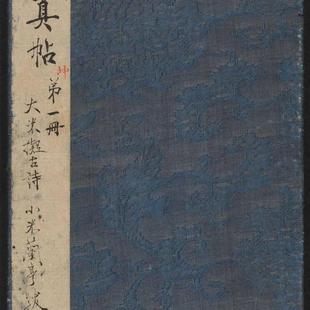 真帖
第一冊
大米擬古詩 小米蘭亭跋